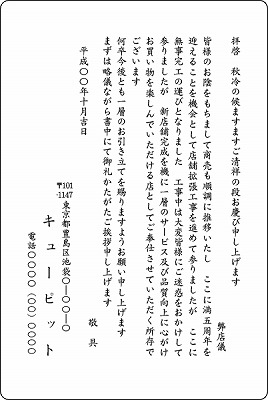 拝啓　秋冷の候ますますご清祥の段お慶び申し上げます
弊店儀
皆様のお陰をもちまして商売も順調に推移いたし　ここに満五周年を
迎えることを機会として店舗拡張工事を進めて参りましたが　ここに
無事完工の運びとなりました　工事中は大変皆様にご迷惑をおかけして
参りましたが　新店舗完成を機に一層のサービス及び品質向上に心がけ
お買い物を楽しんでいただける店としてご奉仕させていただく所存で
ございます
何卒今後とも一層のお引き立てを賜りますようお願い申し上げます
まずは略儀ながら書中にて御礼かたがたご挨拶申し上げます
敬具
平成〇〇年十月吉日
〒101-1147
東京都豊島区池袋〇ー〇ー〇
キューピット
電話〇〇〇〇（〇〇）〇〇〇〇